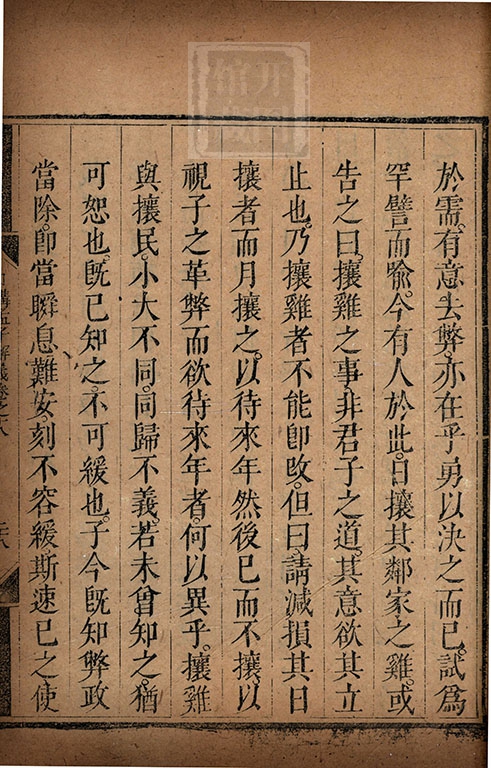 於需。有意去弊。亦在乎勇以決之而已。試爲
罕譬而喻。今有人於此。日攘其鄰家之雞。或
告之曰。攘雞之事。非君子之道。其意欲其立
止也。乃攘雞者不能卽改。但曰。請減損其日
攘者而月攘之。以待來年然後已而不攘。以
視子之革弊而欲待來年者。何以異乎。攘雞
與攘民。小大不同。同歸不義。若未曾知之。猶
可恕也。旣已知之。不可緩也。子今旣知弊政
當除。卽當瞬息難安。刻不容緩。斯速已之。使